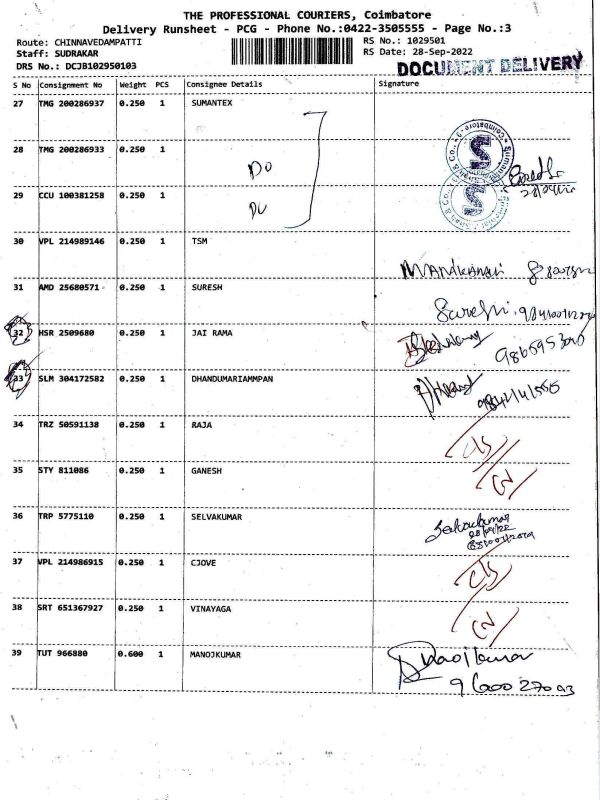 THE PROFESSIONAL COURIERS, Coimbatore
Delivery Runsheet - PCG - Phone No.:0422-3505555 - Page No.:3
Route: CHINNAVEDAMPATTI RS No.: 1029501
Staff: SUDRAKAR RS Date: 28-Sep-2022
DRS No.: DCJB102950103 DOCUMENT DELIVERY
S No Consignment No Weight PCS Consignee Details Signature
27 TMG 200286937 0.250 1 SUMANTEX
28 TMG 200286933 0.250 1 DO
29 CCU 100381258 0.250 1 DO
30 VPL 214989146 0.250 1 TSM
31 AMD 25680571 0.250 1 SURESH
Suresh
32 HSR 2509680 0.250 1 JAI RAMA
33 SLM 304172582 0.250 1 DHANDUMARIAMMPAN
34 TRZ 50591138 0.250 1 RAJA
35 STY 811086 0.250 1 GANESH
36 TRP 5775110 0.250 1 SELVAKUMAR
Selvakumar
28/09/22
37 VPL 214986915 0.250 1 CJOVE
38 SRT 651367927 0.250 1 VINAYAGA
39 TUT 966880 0.600 1 MANOJKUMAR
Manojkumar